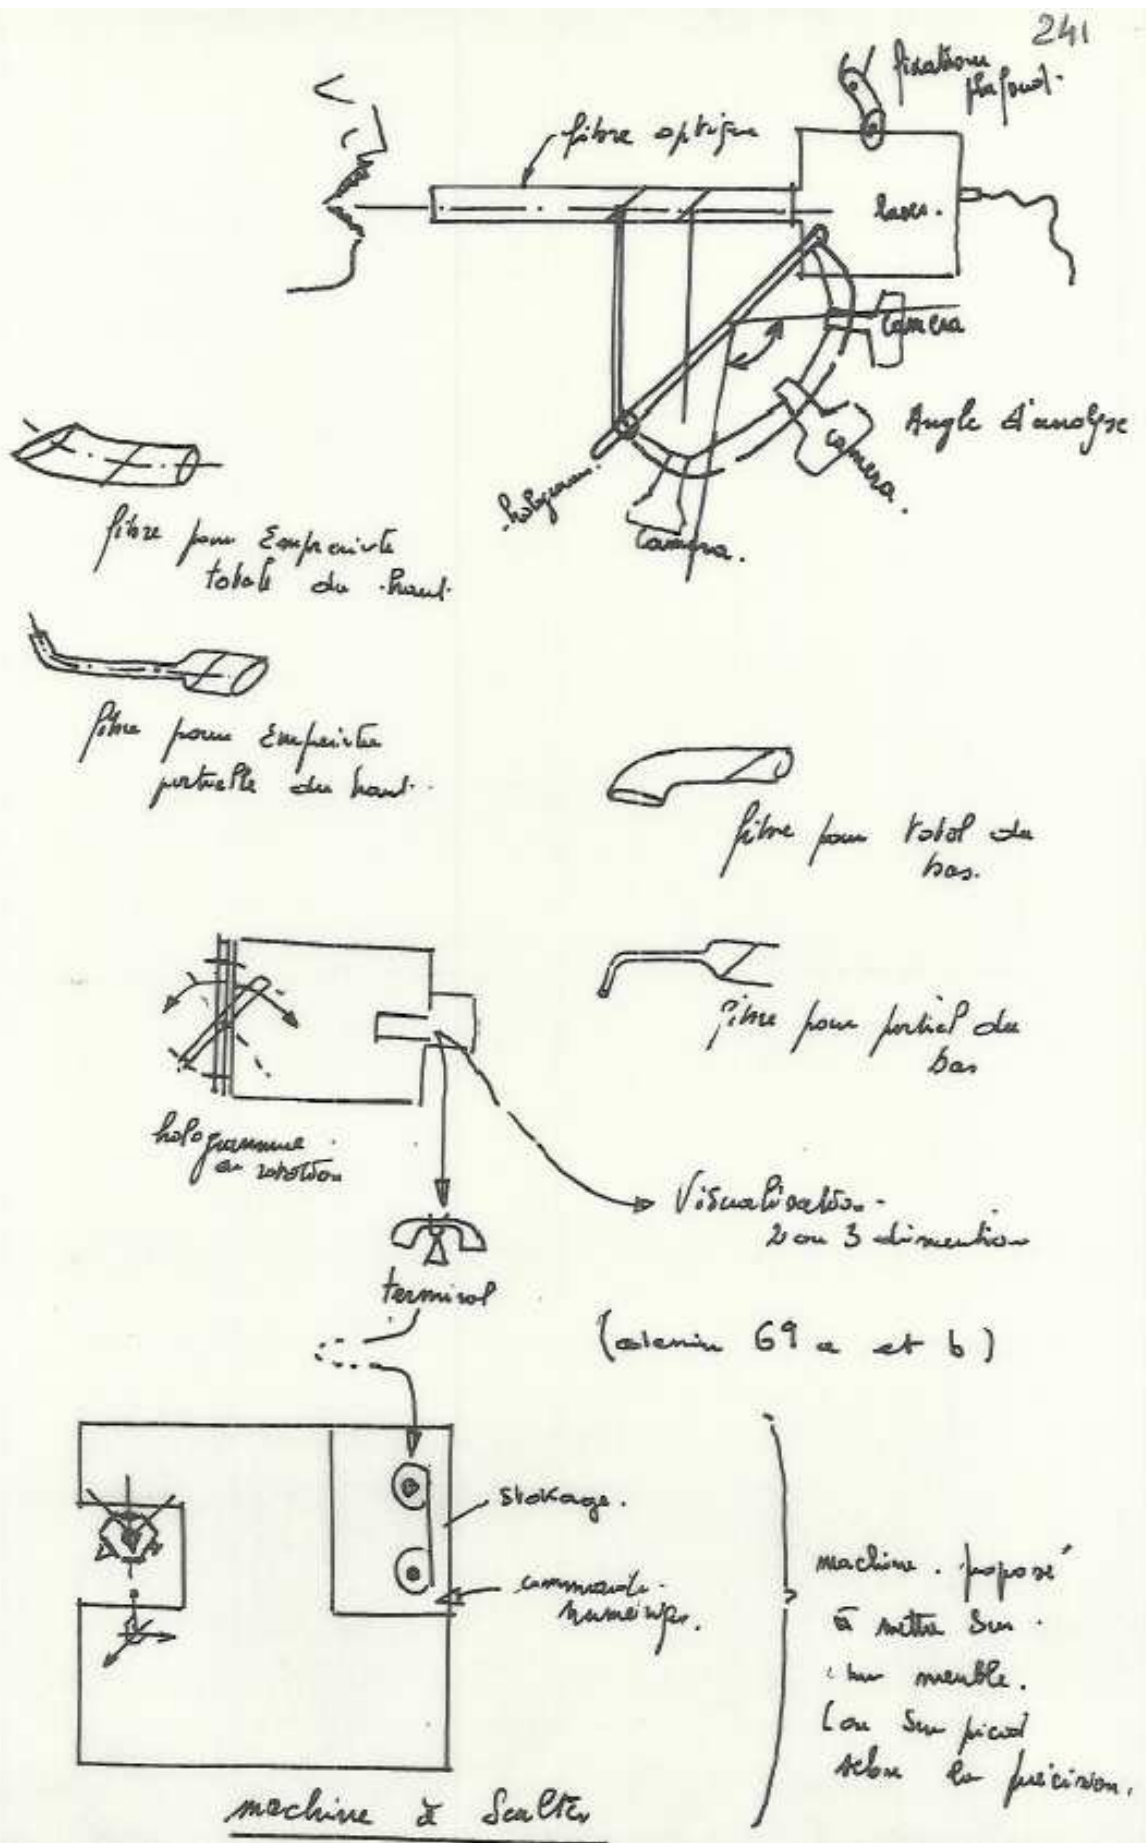 241
fixation
plafond.
fibre optique
laser.
camera
Angle d'analyse
camera.
hologramme.
camera.
fibre pour Empreinte
totale du haut.
fibre pour Empreinte
partielle du haut.
fibre pour total du
bas.
fibre pour partiel du
bas
hologramme
en rotation
Visualisation.
2 ou 3 dimention
terminal
( 69 a et b )
stokage.
commande.
numerique.
machine. proposé
à mettre sur.
un meuble.
(ou sur pied
selon la précision.
machine à Sculter